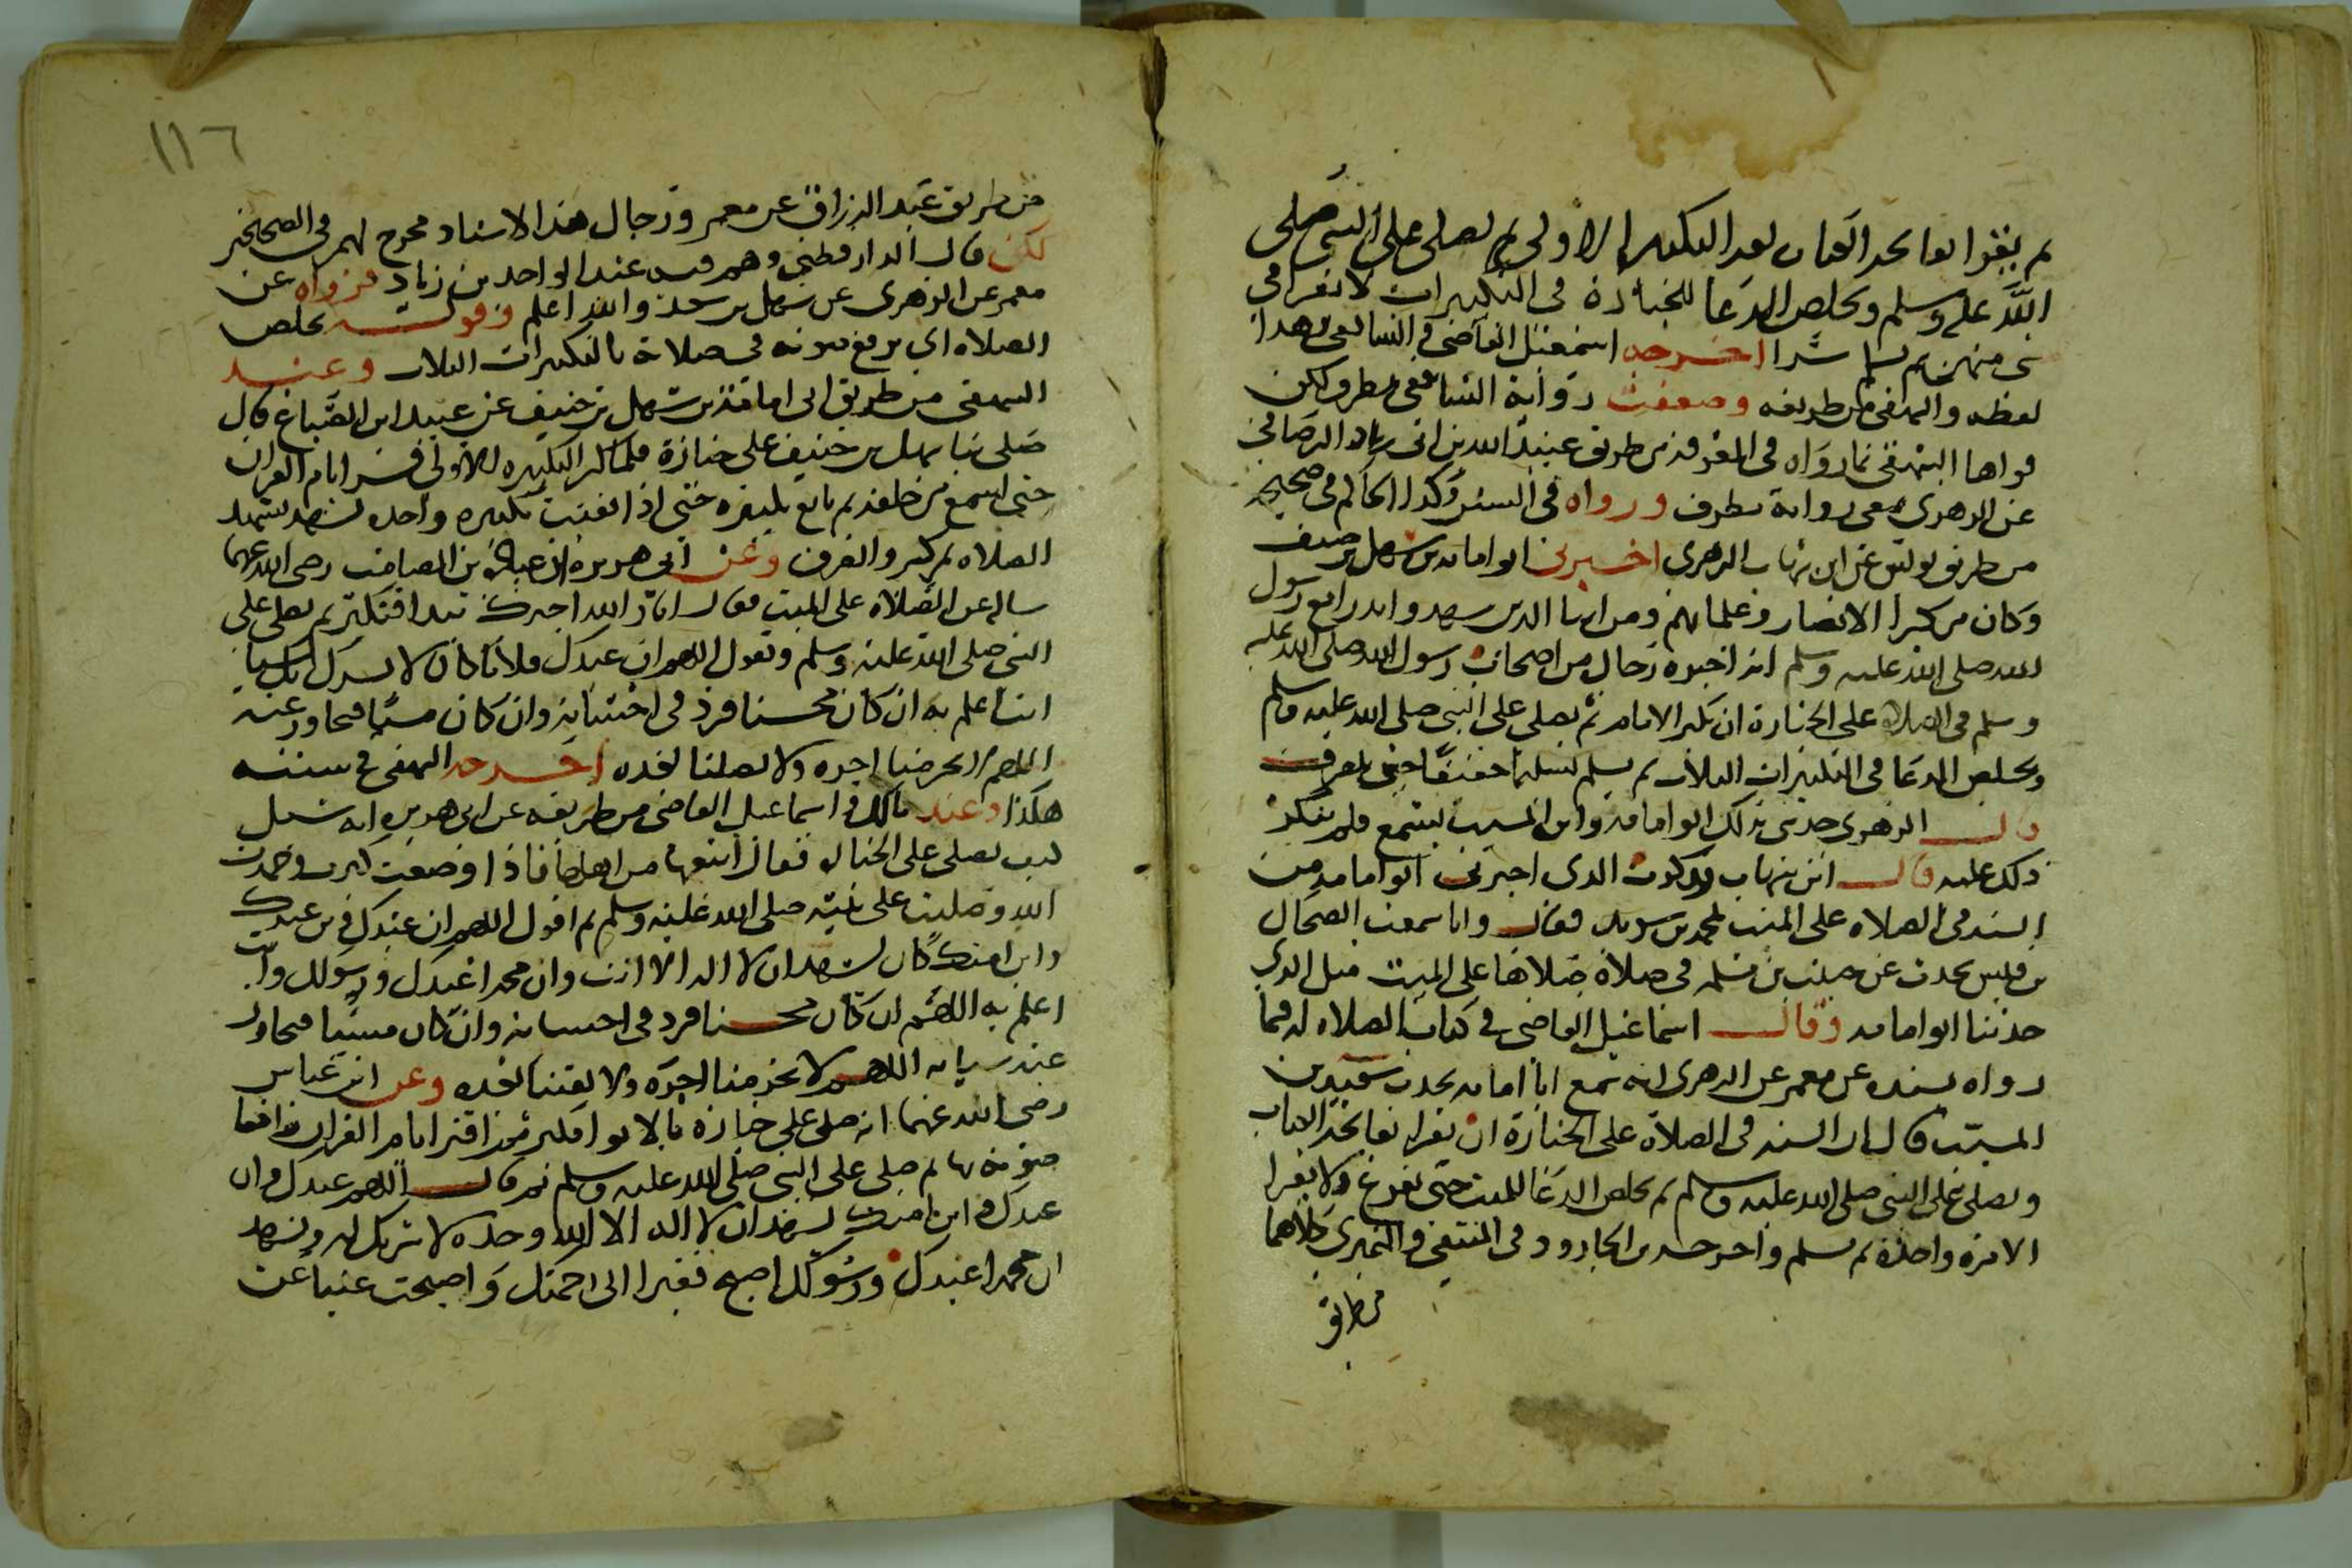 ثم يقرا بفاتحة الكتاب بعد التكبيرة الاولى ثم يصلي على النبي صلى
الله عليه وسلم ويخلص الدعا للجنازة في التكبيرات لا يقرا في
شي منهن ثم يسلم سرا اخرجه اسمعيل القاضي والشافعي وهذا
لفظه والبيهقي من طريقه وضعفت رواية الشافعي بمطرف لكن
قواها البيهقي بما رواه في المعرفة من طريق عبيد الله بن ابي زياد الرصافي
عن الزهري بمعنى رواية مطرف ورواه في السنن وكذا الحاكم في صحيحه
من طريق يونس عن ابن شهاب الزهري اخبرني ابو امامة بن سهل بن حنيف
وكان من كبرا الانصار وعلمائهم ومن ابنا الذين شهدوا بدرا مع رسول
الله صلى الله عليه وسلم انه اخبره رجال من اصحاب رسول الله صلى الله عليه
وسلم في الصلاة على الجنازة ان يكبر الامام ثم يصلي على النبي صلى الله عليه وسلم
ويخلص الدعا في التكبيرات الثلاث ثم يسلم تسليما خفيفا حتى ينصرف
قال الزهري حدثني بذلك ابو امامة وابن المسيب يسمع فلم ينكر
ذلك عليه قال ابن شهاب فذكرت الذي اخبرني ابو امامة من
السنة في الصلاه على الميت لمحمد بن سويد فقال وانا سمعت الضحاك
بن قيس يحدث عن حبيب بن مسلمة في صلاة صلاها على الميت مثل الذي
حدثنا ابو امامه وقال اسماعيل القاضي في كتاب الصلاه له فيما
رواه بسنده عن معمر عن الزهري انه سمع ابا امامه يحدث سعيد بن
المسيب قال ان السنه في الصلاة على الجنازة ان يقرا بفاتحة الكتاب
ويصلي على النبي صلى الله عليه وسلم ثم يخلص الدعا للميت حتى يفرغ ولا يقرا
الا مرة واحدة ثم يسلم واخرجه بن الجارود في المنتقى والنميري كلاهما
من طريق
١١٦
من طريق عبد الرزاق عن معمر ورجال هذا الاسناد مخرج لهم في الصحيحين
لكن قال الدارقطني وهم فيه عبد الواحد بن زياد فرواه عن
معمر عن الزهري عن سهل بن سعد والله اعلم وقوله يخلص
الصلاه اي يرفع صوته في صلاته بالتكبيرات الثلاث وعند
البيهقي من طريق ابي امامة بن سهل بن حنيف عن عبيد ابن السباق قال
صلى بنا سهل بن حنيف على جنازة فلما كبر التكبيره الاولى قرا بام القران
حتى اسمع من خلفه ثم تابع تكبيره حتى اذا بقيت تكبيرة واحده تشهد تشهد
الصلاه ثم كبر وانصرف وعن ابي هريره ان عبادة بن الصامت رضي الله عنهما
ساله عن الصلاة على الميت فقال انا والله اخبرك تبدا فتكبر ثم تصلي على
النبي صلى الله عليه وسلم وتقول اللهم ان عبدك فلانا كان لا يشرك بك شيا
انت اعلم به ان كان محسنا فزد في احسانه وان كان مسيا فتجاوز عنه
اللهم لا تحرمنا اجره ولا تضلنا بعده اخرجه البيهقي في سننه
هكذا وعند مالك واسماعيل القاضي من طريقه عن ابي هريره انه سئل
كيف تصلي على الجنازه فقال اتبعها من اهلها فاذا وضعت كبرت وحمدت
الله وصليت على نبيه صلى الله عليه وسلم ثم اقول اللهم ان عبدك وبن عبدك
وابن امتك كان يشهد ان لا اله الا انت وان محمدا عبدك ورسولك وانت
اعلم به اللهم ان كان محسنا فزد في احسانه وان كان مسيئا فتجاوز
عنه سياته اللهم لا تحرمنا اجره ولا تفتنا بعده وعن ابن عباس
رضي الله عنهما انه صلى على جنازه بالابوا فكبر ثم اقترا بام القران رافعا
صوته بها ثم صلى على النبي صلى الله عليه وسلم ثم قال اللهم عبدك وابن
عبدك وابن امتك يشهد ان لا اله الا الله وحده لا شريك له ويشهد
ان محمدا عبدك ورسولك اصبح فقيرا الى رحمتك واصبحت غنيا عن